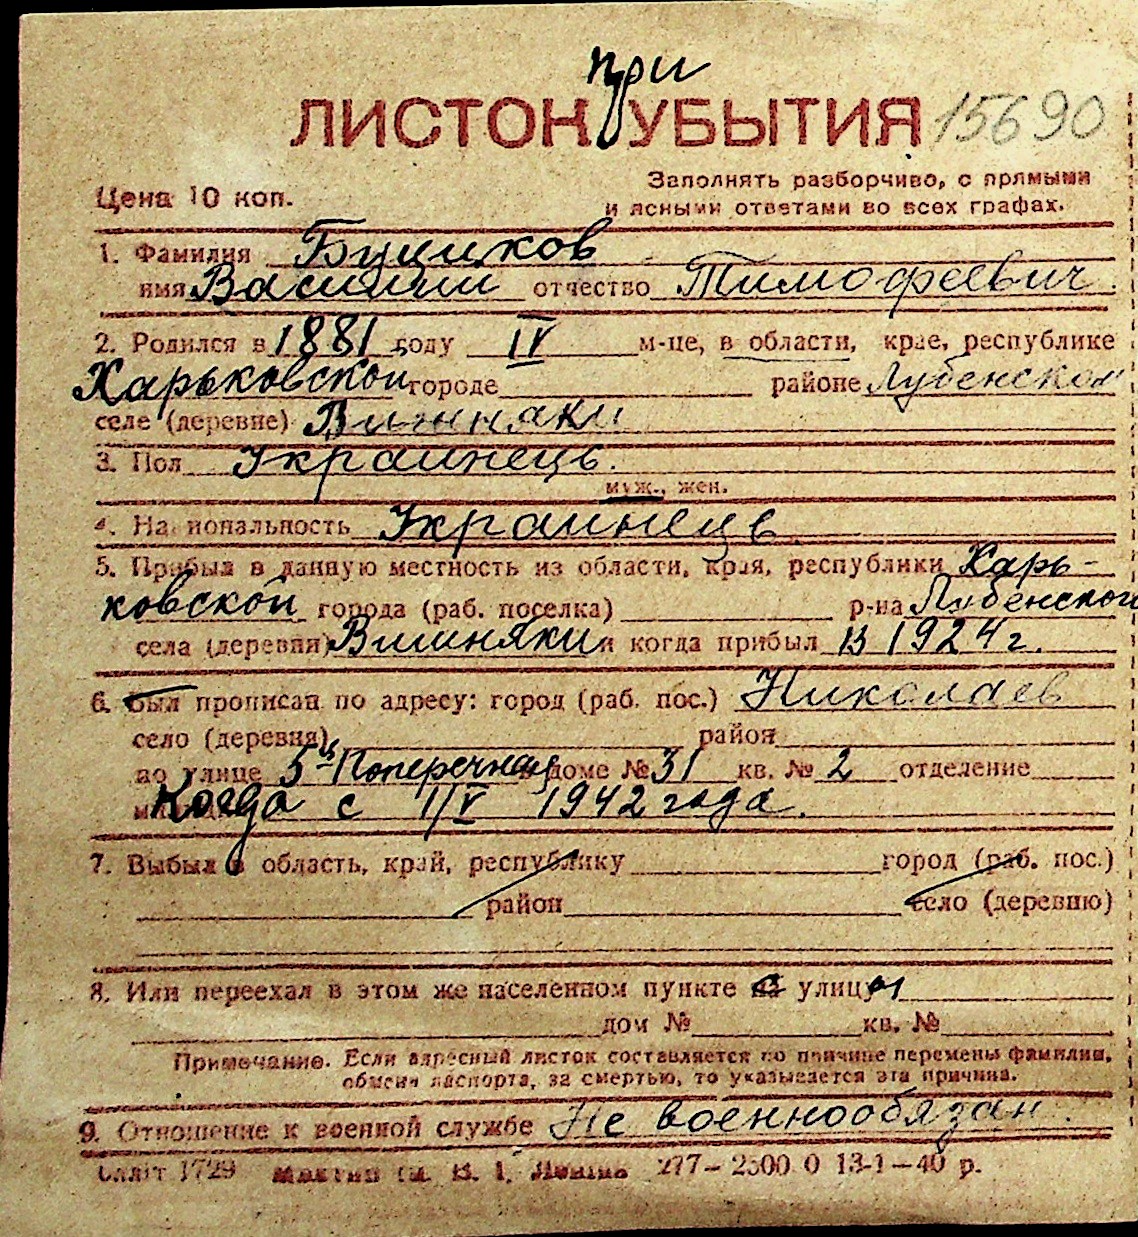 при
ЛИСТОК УБЫТИЯ 15690
Цена 10 коп.
Заполнять разборчиво, с прямыми
и ясными ответами во всех графах.
1. Фамилия Буциков
имя Василий отчество Тимофеевич.
2. Родился в 1881 году IV м-це, в области, крае, республике
Харьковской городе районе Лубенском
селе (деревне) Вишняки
3. Пол Украинець.
муж., жен.
4. Национальность Украинець.
5. Прибыл в данную местность из области, края, республики Харь-
ковской города (раб. поселка) р-на Лубенского
села (деревни) Вишняки и когда прибыл в 1924 г.
6. Был прописан по адресу: город (раб. пос.) Николаев
село (деревня) район
по улице 5ц Поперечная доме № 31 кв. № 2 отделение
Когда с 1/V 1942 года.
7. Выбыл в область, край, республику город (раб. пос.)
район село (деревню)
8. Или переехал в этом же населенном пункте на улицы
дом № кв. №
Примечание. Если адресный листок составляется по причине перемены фамилии,
обмена паспорта, за смертью, то указывается эта причина.
9. Отношение к военной службе Не военнообязан.
1729 В. І. Леніна 277–2500 0 13-1–40 р.